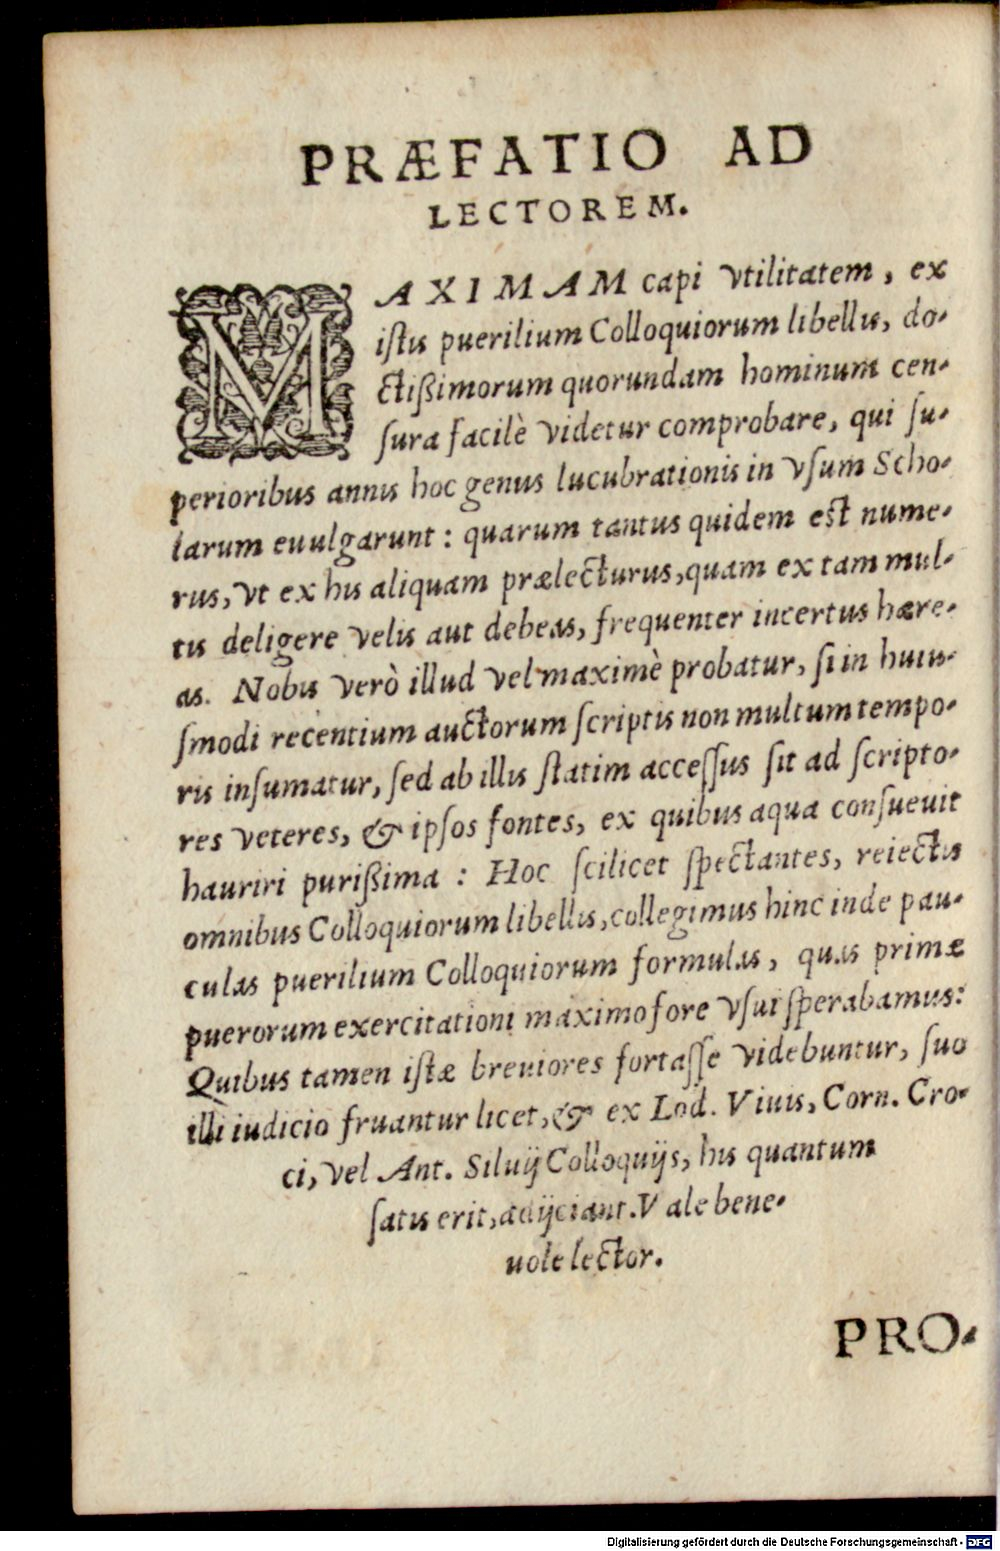 PRÆFATIO AD
LECTOREM.
MAXIMAM capi vtilitatem, ex
istis puerilium Colloquiorum libellis, do-
ctißimorum quorundam hominum cen-
sura facilè videtur comprobare, qui su-
perioribus annis hoc genus lucubrationis in vsum Scho-
larum euulgarunt: quarum tantus quidem est nume-
rus, vt ex his aliquam prælecturus, quam ex tam mul-
tis deligere velis aut debeas, frequenter incertus hære-
as. Nobis verò illud vel maximè probatur, si in huiu-
smodi recentium auctorum scriptis non multum tempo-
ris insumatur, sed ab illis statim accessus sit ad scripto-
res veteres, & ipsos fontes, ex quibus aqua consueuit
hauriri purißima: Hoc scilicet spectantes, reiectis
omnibus Colloquiorum libellis, collegimus hinc inde pau-
culas puerilium Colloquiorum formulas, quas primæ
puerorum exercitationi maximo fore vsui sperabamus:
Quibus tamen istæ breuiores fortasse videbuntur, suo
illi iudicio fruantur licet, & ex Lod. Viuis, Corn. Cro-
ci, vel Ant. Siluij Colloquijs, his quantum
satis erit, adijciant. Vale bene-
uole lector.
PRO-
Digitalisierung gefördert durch die Deutsche Forschungsgemeinschaft - DFG